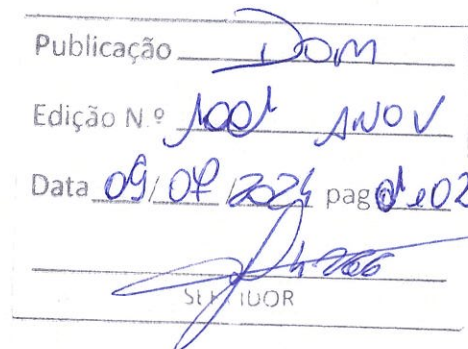 Publicação DOM
Edição N.º 1001 ANO V
Data 09/07/2024 pag 01 e 02
SERVIDOR